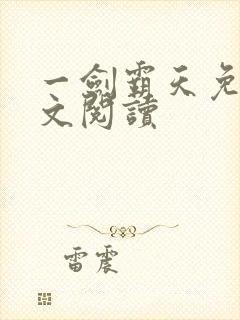 一劍霸天免
文閱讀
雷震